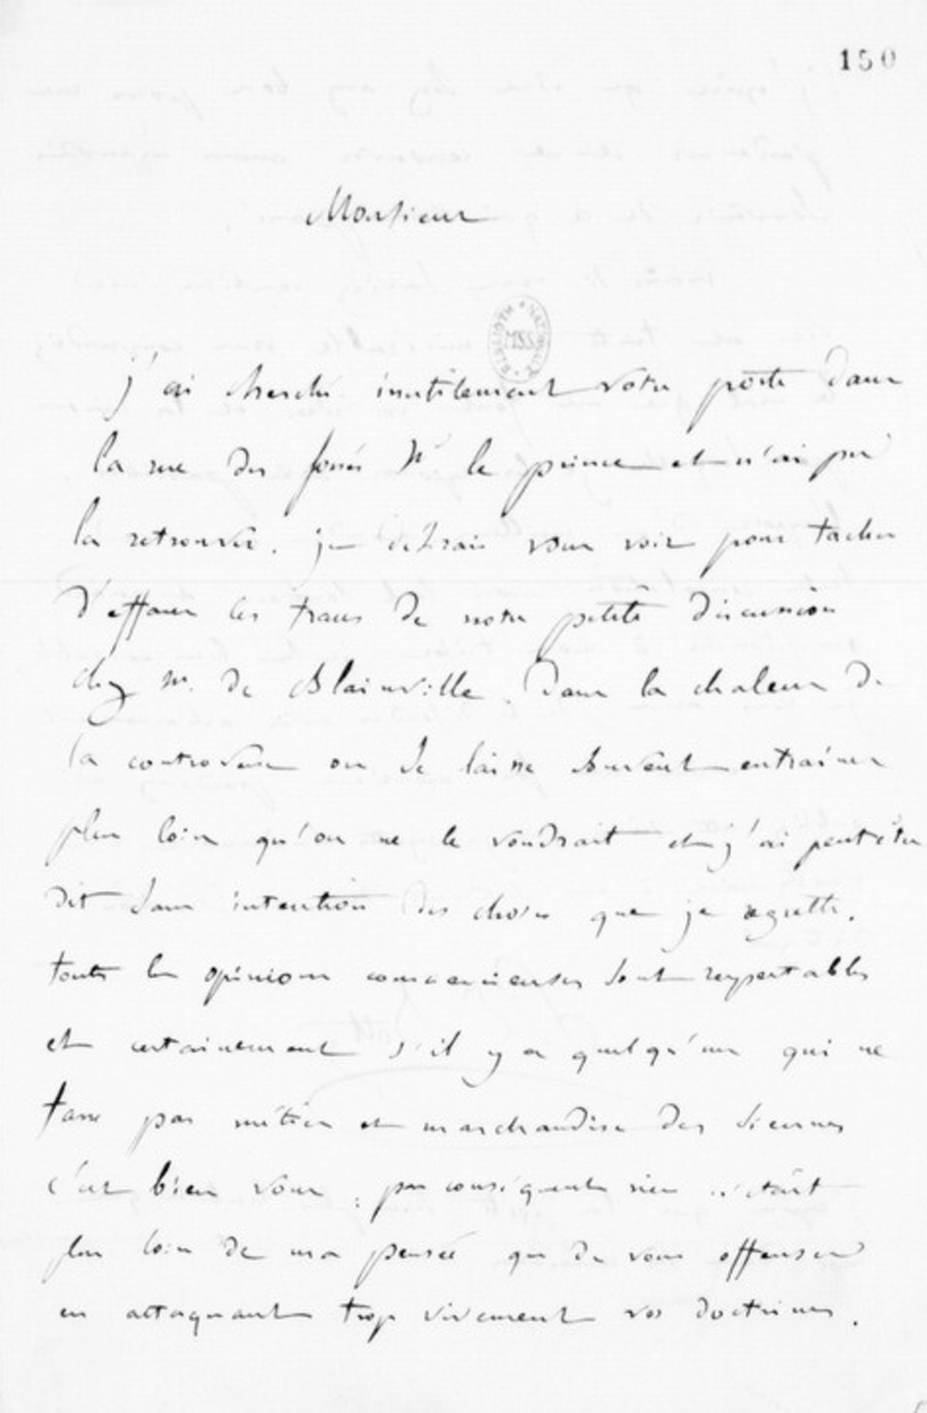 150
Monsieur
BIBLIOTH. NATIONALE MSS
j'ai cherché inutilement votre porte dans
la rue des fossés Mr le prince et n'ai pu
la retrouver. je désirais vous voir pour tacher
d'effacer les traces de notre petite discussion
chez Mr. de Blainville. Dans la chaleur de
la controverse on se laisse souvent entrainer
plus loin qu'on ne le voudrait et j'ai peut être
dit sans intention des choses que je regrette.
toutes les opinions consciencieuses sont respectables
et certainement s'il y a quelqu'un qui ne
fasse pas métier et marchandise des siennes
c'est bien vous ; par conséquent rien n'était
plus loin de ma pensée que de vous offenser
en attaquant trop vivement vos doctrines.